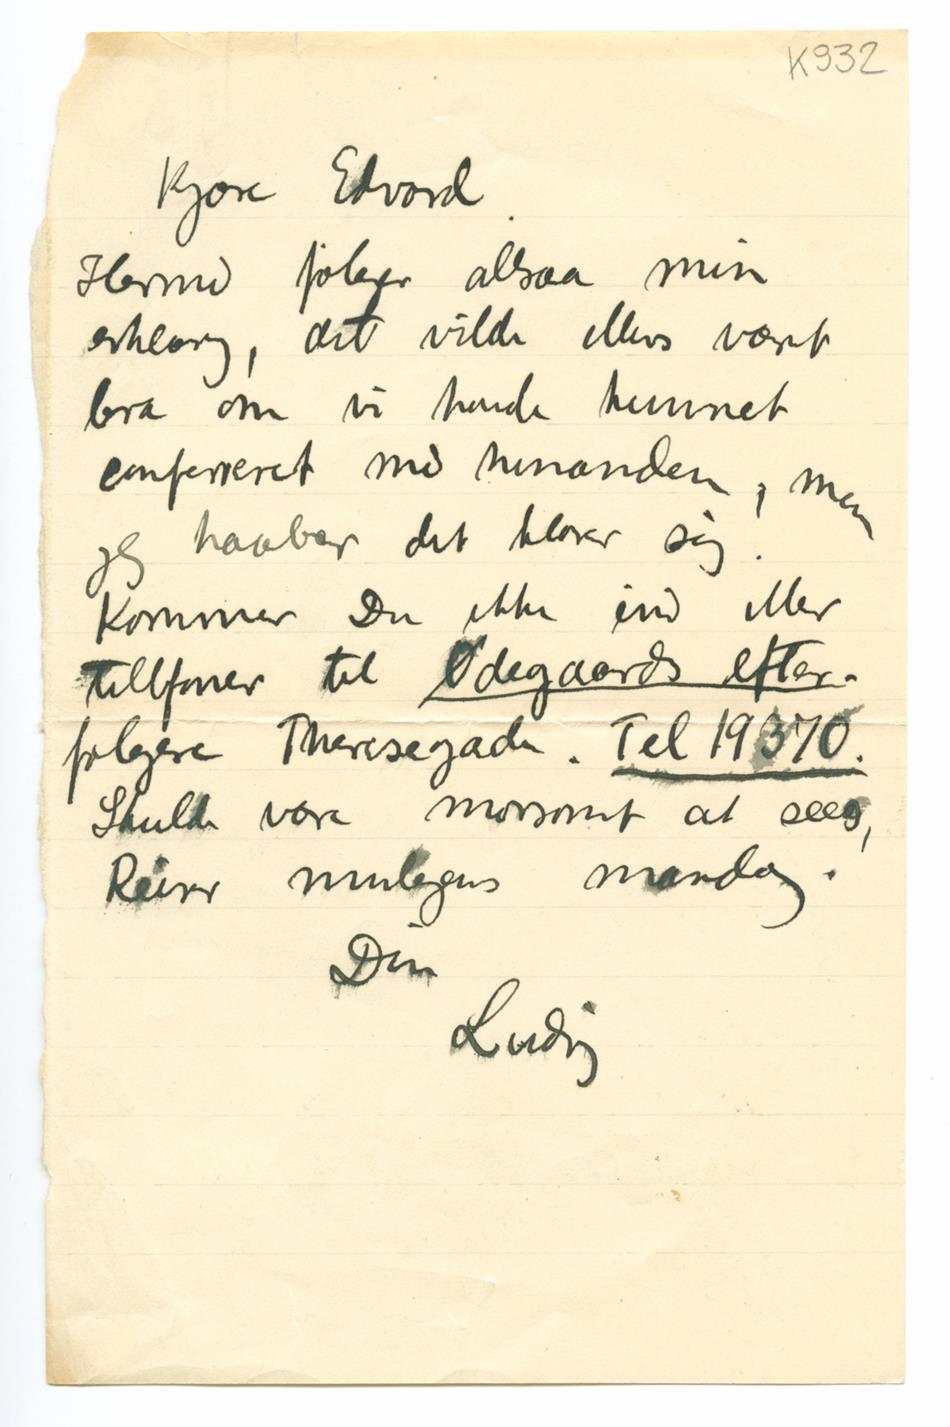 K932
Kjære Edvard
Hermed følger altsaa min
erklærg, det vilde ellers været
bra om vi havde kunnet
confereret med hinanden, men
jeg haaber det klarer sig.
Kommer Du ikke ind eller
tellfoner til Ødegaards efter-
følgere Theresegade. Tel 19370.
Skulde være morsomt at sees,
Reiser muligens mandag.
Din
Ludvig